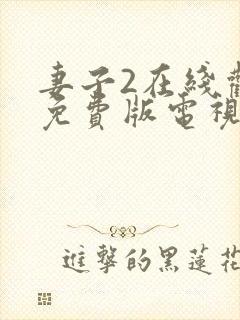 妻子2在綫
免費版電視
進擊的黑蓮花